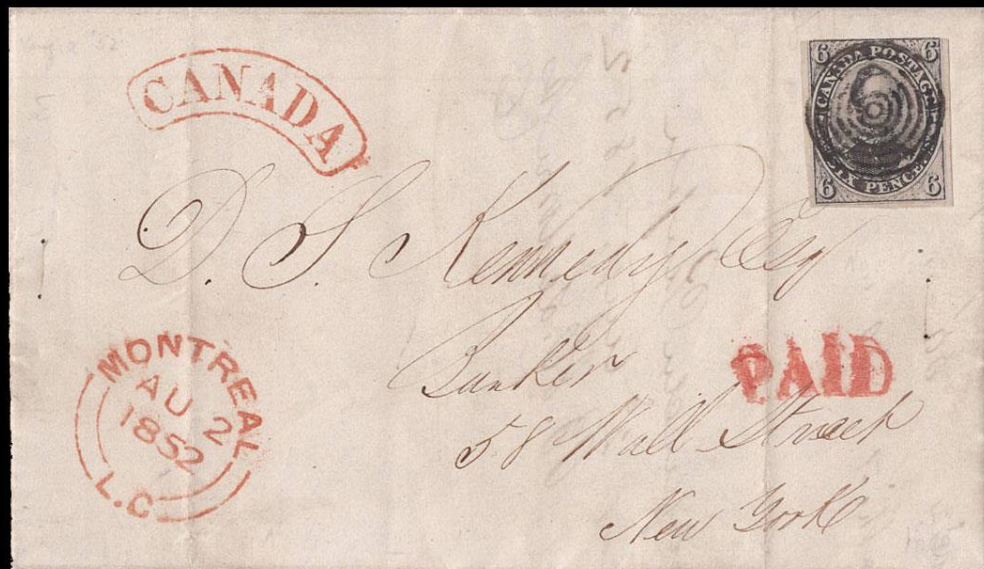 CANADA
6 6
CANADA POSTAGE
SIX PENCE
6 6
D. S. Kennedy Esq
Banker
PAID
58 Wall Street
New York
MONTREAL
AU 2
1852
L.C